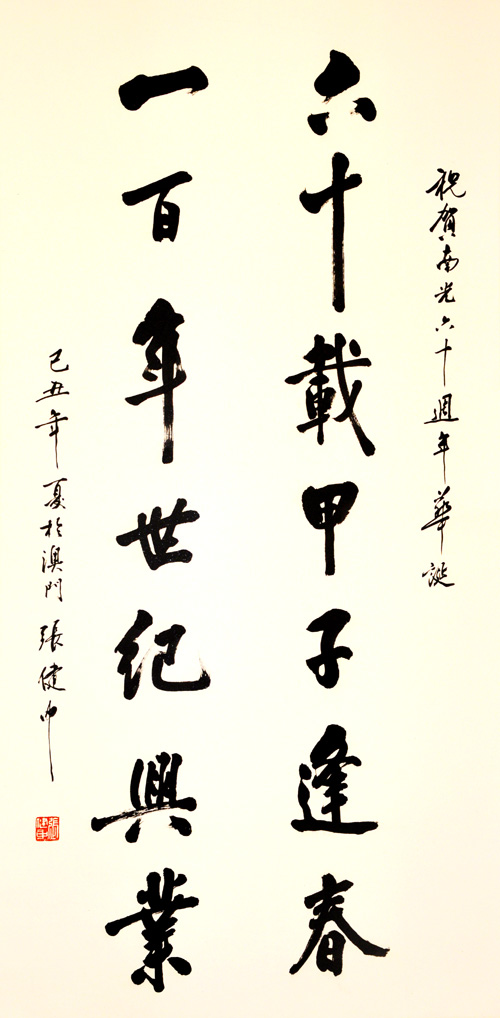 祝賀南光六十週年華誕
六十載甲子逢春
一百年世紀興業
己丑年夏於澳門 張健中